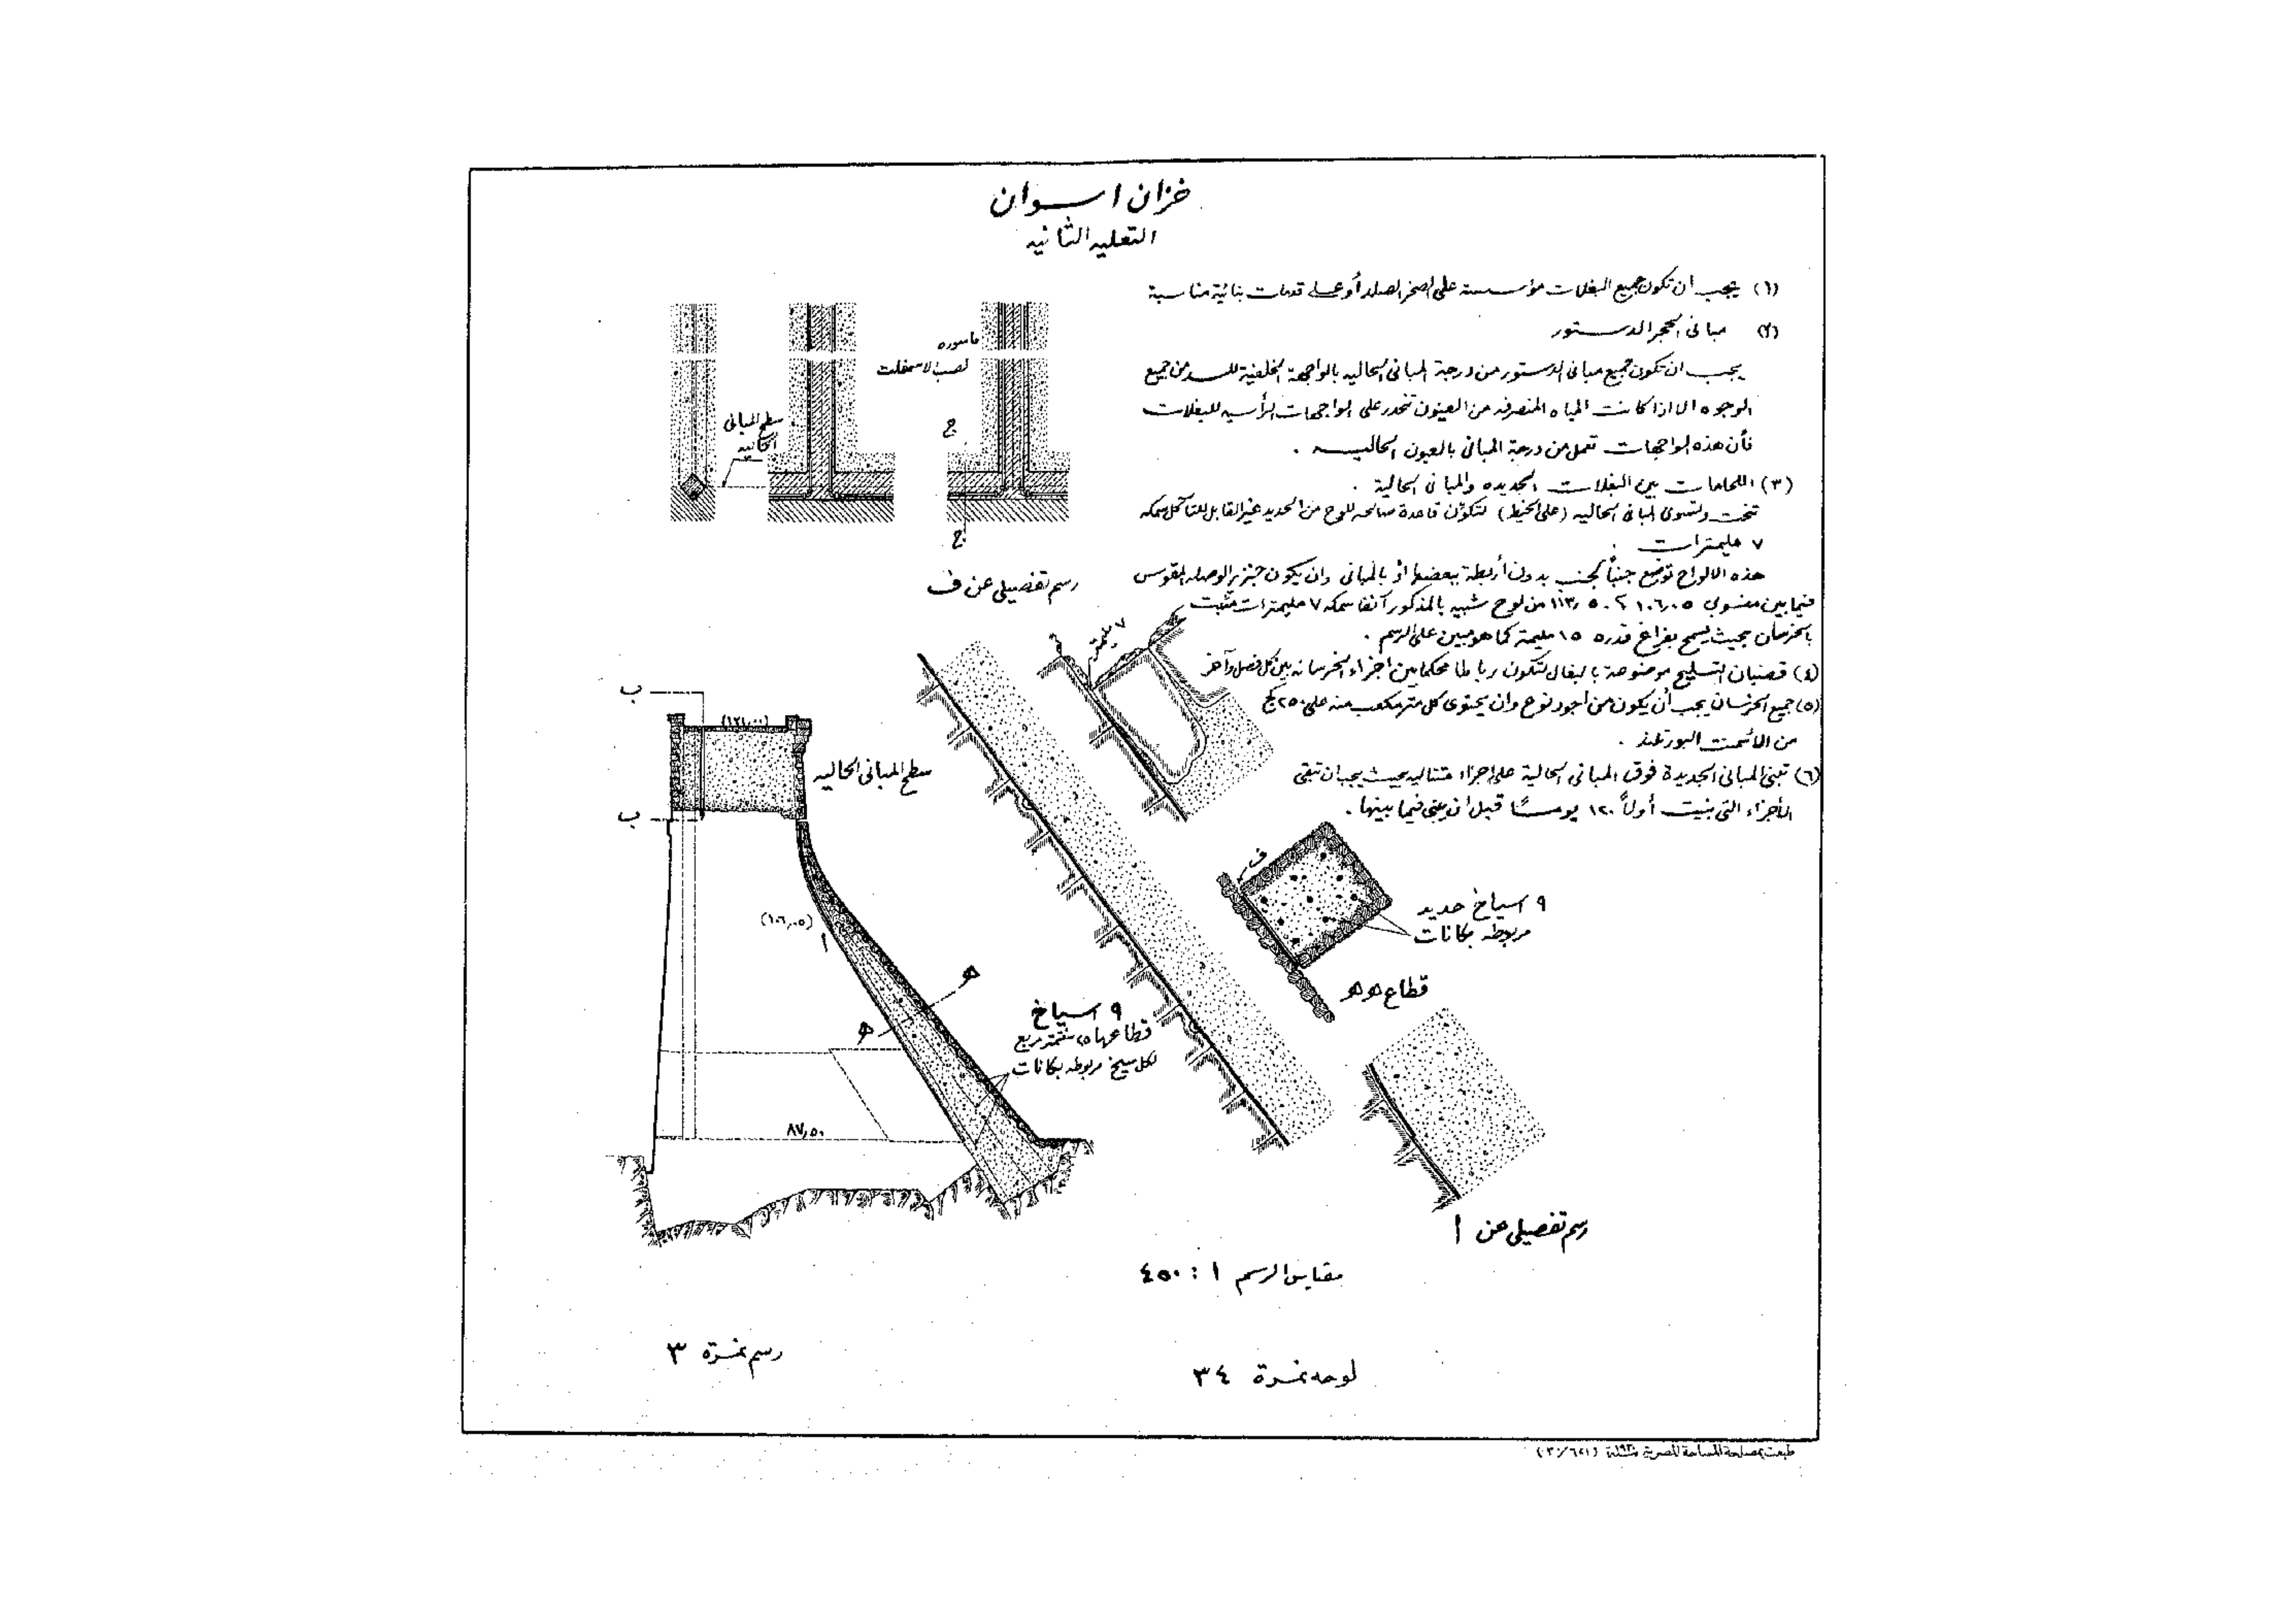 خزان اسوان
التعليه الثانيه
(١) يجب ان تكون جميع البغلات مؤسسة على الصخر الصلد أو على قدمات بنائية مناسبة
(٢) مبانى الحجر الدستور
يجب ان تكون جميع مبانى الدستور من درجة المبانى الحاليه بالواجهة الخلفية للسد من جميع
الوجوه الا اذا كانت المياه المنصرفه من العيون تنحدر على الواجهات الرأسيه للبغلات
فأن هذه الواجهات تعمل من درجة المبانى بالعيون الحاليه .
(٣) اللحامات بين البغلات الجديده والمبانى الحالية .
تنحت وتسوى المبانى الحاليه (على الخيط) لتكوّن قاعدة صالحه للوح من الحديد غير القابل للتآكل سمكه
٧ مليمترات .
هذه الالواح توضع جنباً لجنب بدون أربطة ببعضها او بالمبانى وان يكون جنزير الوصله المقوس
فيما بين منسوبى ١٠٦,٠٥ ، ١١٣,٥٠ من لوح شبيه بالمذكور آنفا سمكه ٧ مليمترات مثبت
بالخرسان بحيث يسمح بفراغ قدره ١٥ مليمتة كما هو مبين على الرسم .
(٤) قضبان التسليح موضوعة بالبغال لتكون رباطا محكما بين اجزاء الخرسانه بين كل فصل وآخر
(٥) جميع الخرسان يجب أن يكون من أجود نوع وان يحتوى كل متر مكعب منه على ٢٥٠ كج
من الأسمنت البورتلند .
(٦) تبنى المبانى الجديدة فوق المبانى الحالية على اجزاء متتاليه بحيث يجب ان تبقى
الأجزاء التى بنيت أولاً ١٢٠ يوماً قبل ان يبنى فيما بينها .
ماسوره
لصب الاسفلت
سطح المبانى
الحاليه
ج
ج
رسم تفصيلى عن ف
٧ مليمتر
ب
(١٢١,٠٠)
سطح المبانى الحاليه
ب
(١٠٦,٠٥)
أ
ه
ه
٩ اسياخ
قطاعها ٢٥ سنتمتر مربع
لكل سيخ مربوطه بكانات
٨٧,٥٠
ف
٩ اسياخ حديد
مربوطه بكانات
قطاع ه ه
رسم تفصيلى عن أ
مقياس الرسم ١ : ٤٥٠
رسم نمرة ٣
لوحه نمرة ٣٤
طبعت بمصلحة المساحة المصرية